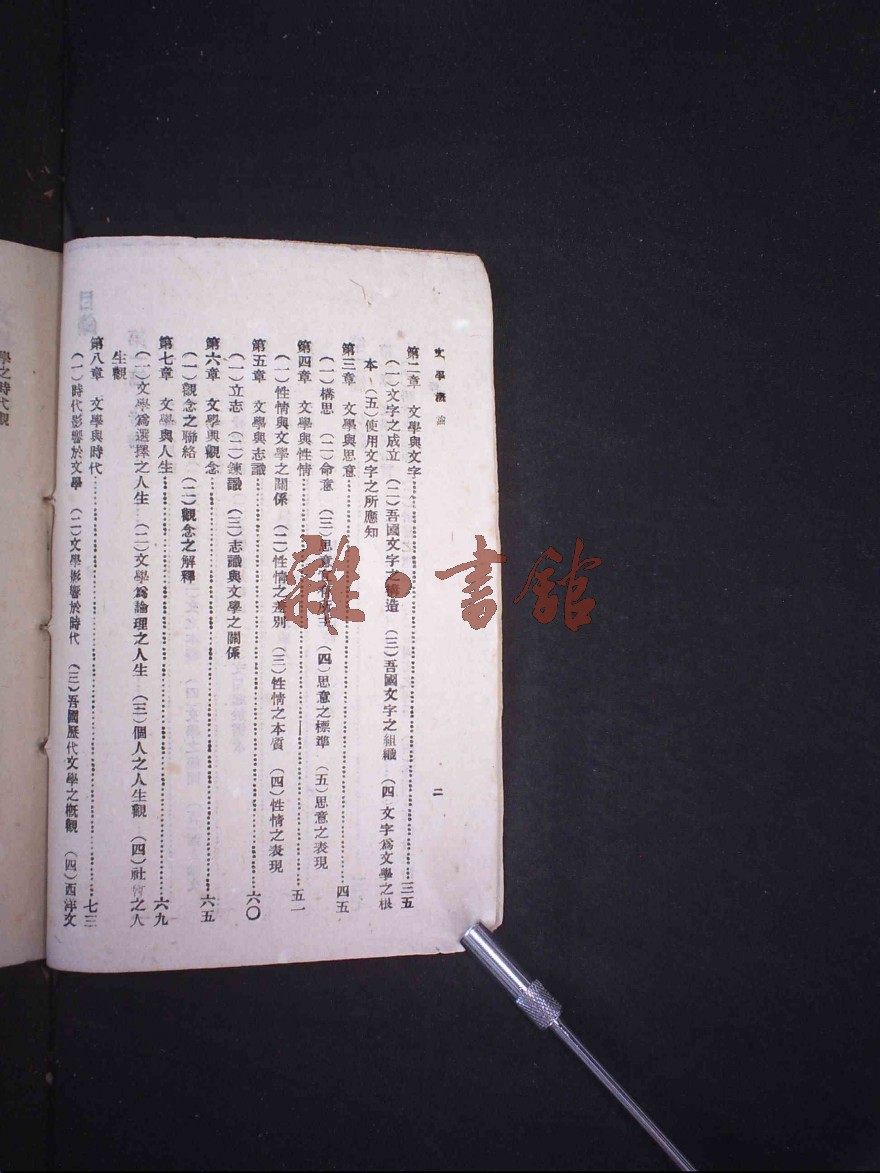 文學槪論
二
第二章　文學與文字……三五
（一）文字之成立　（二）吾國文字之構造　（三）吾國文字之組織　（四）文字爲文學之根
本　（五）使用文字之所應知
第三章　文學與思意……四五
（一）構思　（二）命意　（三）思意　（四）思意之標準　（五）思意之表現
第四章　文學與性情……五一
（一）性情與文學之關係　（二）性情之差別　（三）性情之本質　（四）性情之表現
第五章　文學與志識……六〇
（一）立志　（二）鍊識　（三）志識與文學之關係
第六章　文學與觀念……六五
（一）觀念之聯絡　（二）觀念之解釋
第七章　文學與人生……六九
（一）文學爲選擇之人生　（二）文學爲論理之人生　（三）個人之人生觀　（四）社會之人
生觀
第八章　文學與時代……七三
（一）時代影響於文學　（二）文學影響於時代　（三）吾國歷代文學之槪觀　（四）西洋文
學之時代觀
雜·書館